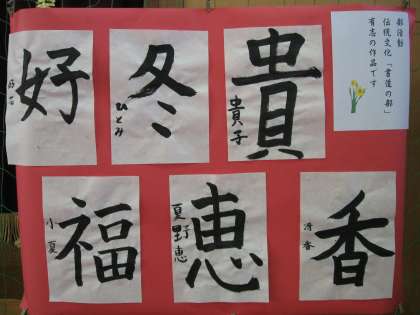 部活動
伝統文化「書道の部」
有志の作品です
貴
貴子
冬
ひとみ
好
福
小夏
恵
夏野恵
香